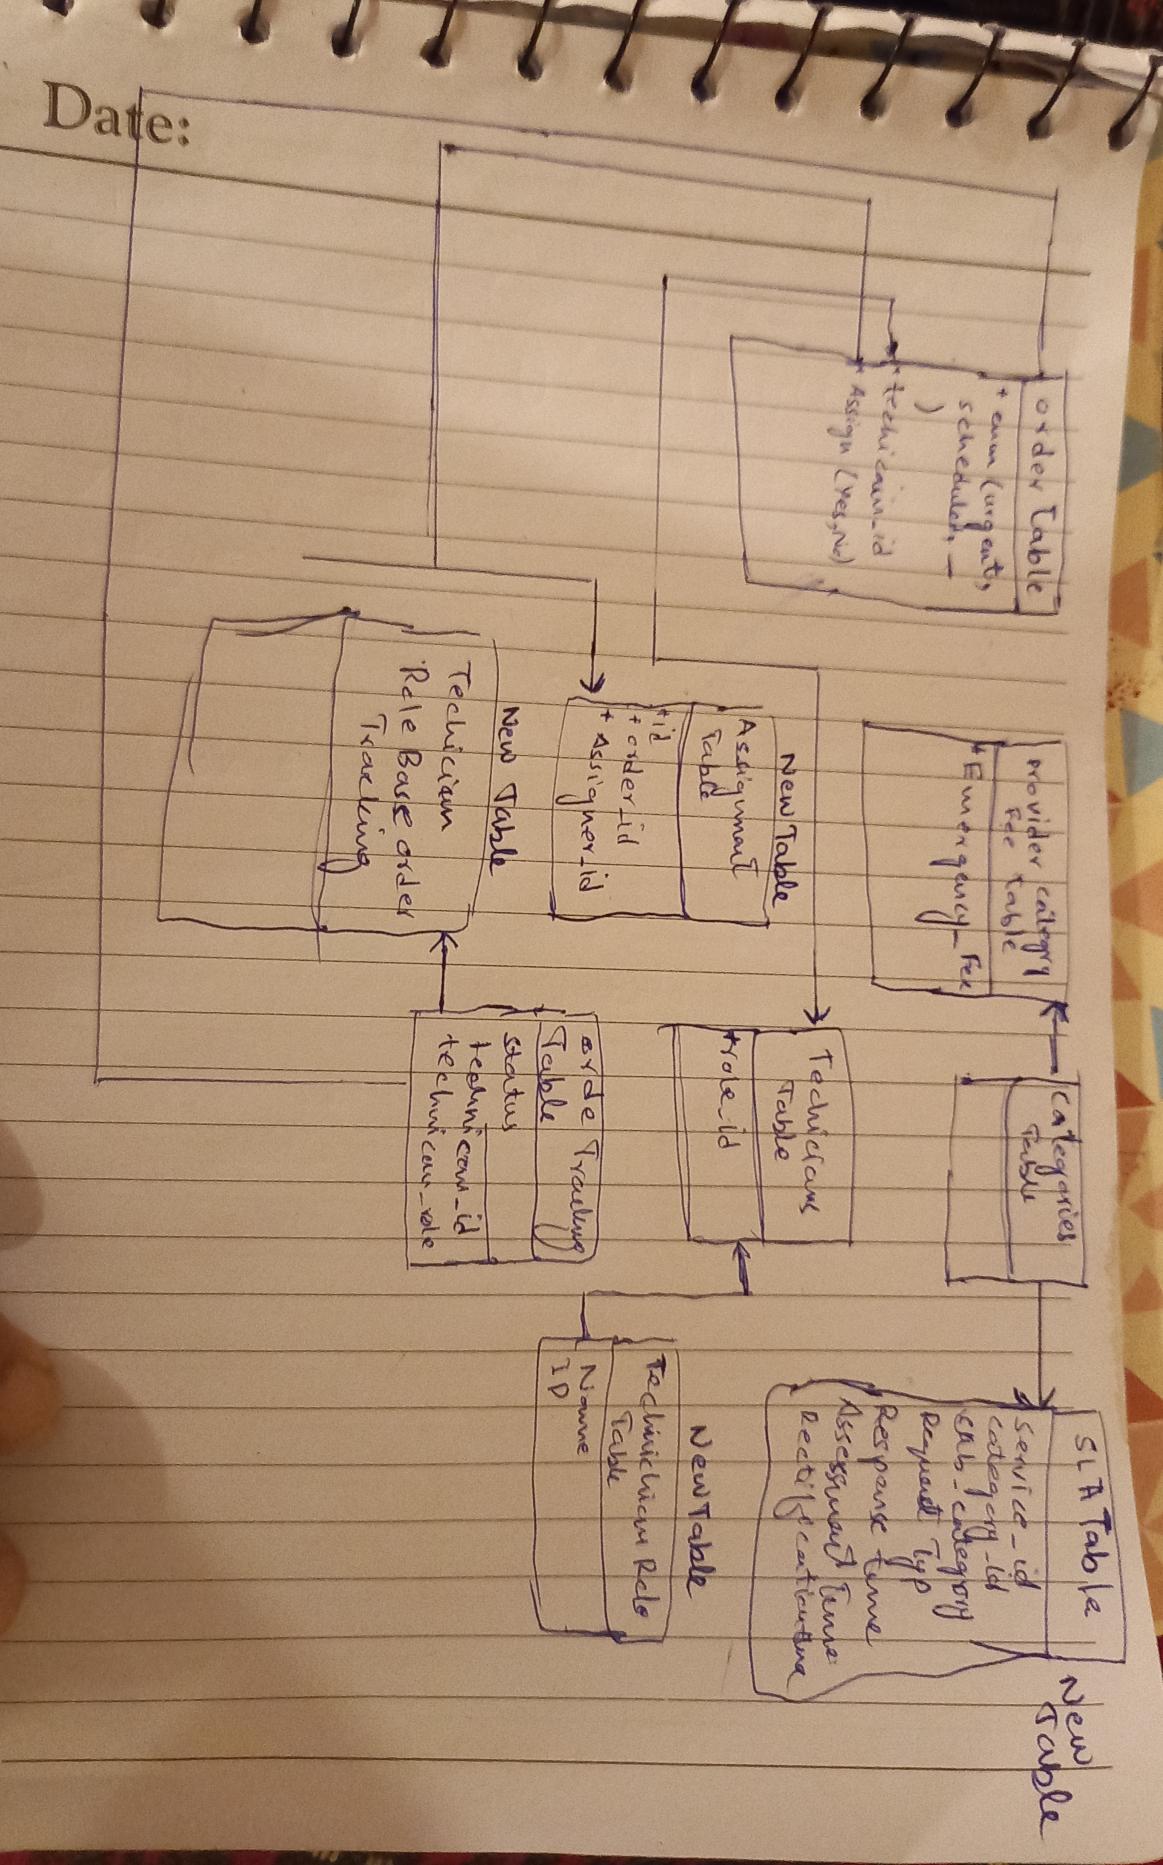 order Table
+ enum (urgent,
scheduled, —
)
+ techicain_id
+ Assign (Yes, No)
Provider categry
Fee Table
+ Emergency_Fee
Categories
Table
SLA Table
New
Table
Service_id
category_id
category
Request Typ
Response time
Assessment Time
New Table
Assignment
Table
+ id
+ order_id
+ Assigner_id
Techicians
Table
+role_id
New Table
Technichian Role
Table
Name
ID
orde Tracking
Table
status
technican_id
technican_role
New Table
Techician
Role Base order
Tracking
Date: